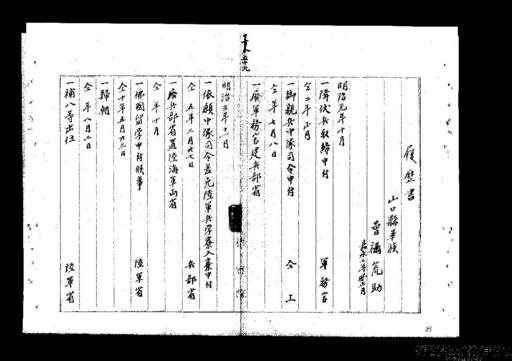 履歴書
山口縣華族
曽禰荒助
嘉永二年正月
明治元年十月
一降伏兵取締申付 軍務官
仝二年正月
一御親兵中隊司令申付 仝上
仝年七月八日
一廃軍務官建兵部省
明治三年十一月
一依願中隊司令差免陸軍兵学寮入寮申付 兵部省
仝五年二月廿七日
一廃兵部省置陸海軍両省
仝年十月
一佛國留学申付候事 陸軍省
仝十年五月廿三日
一歸朝
仝年八月二日
一補八等出仕 陸軍省